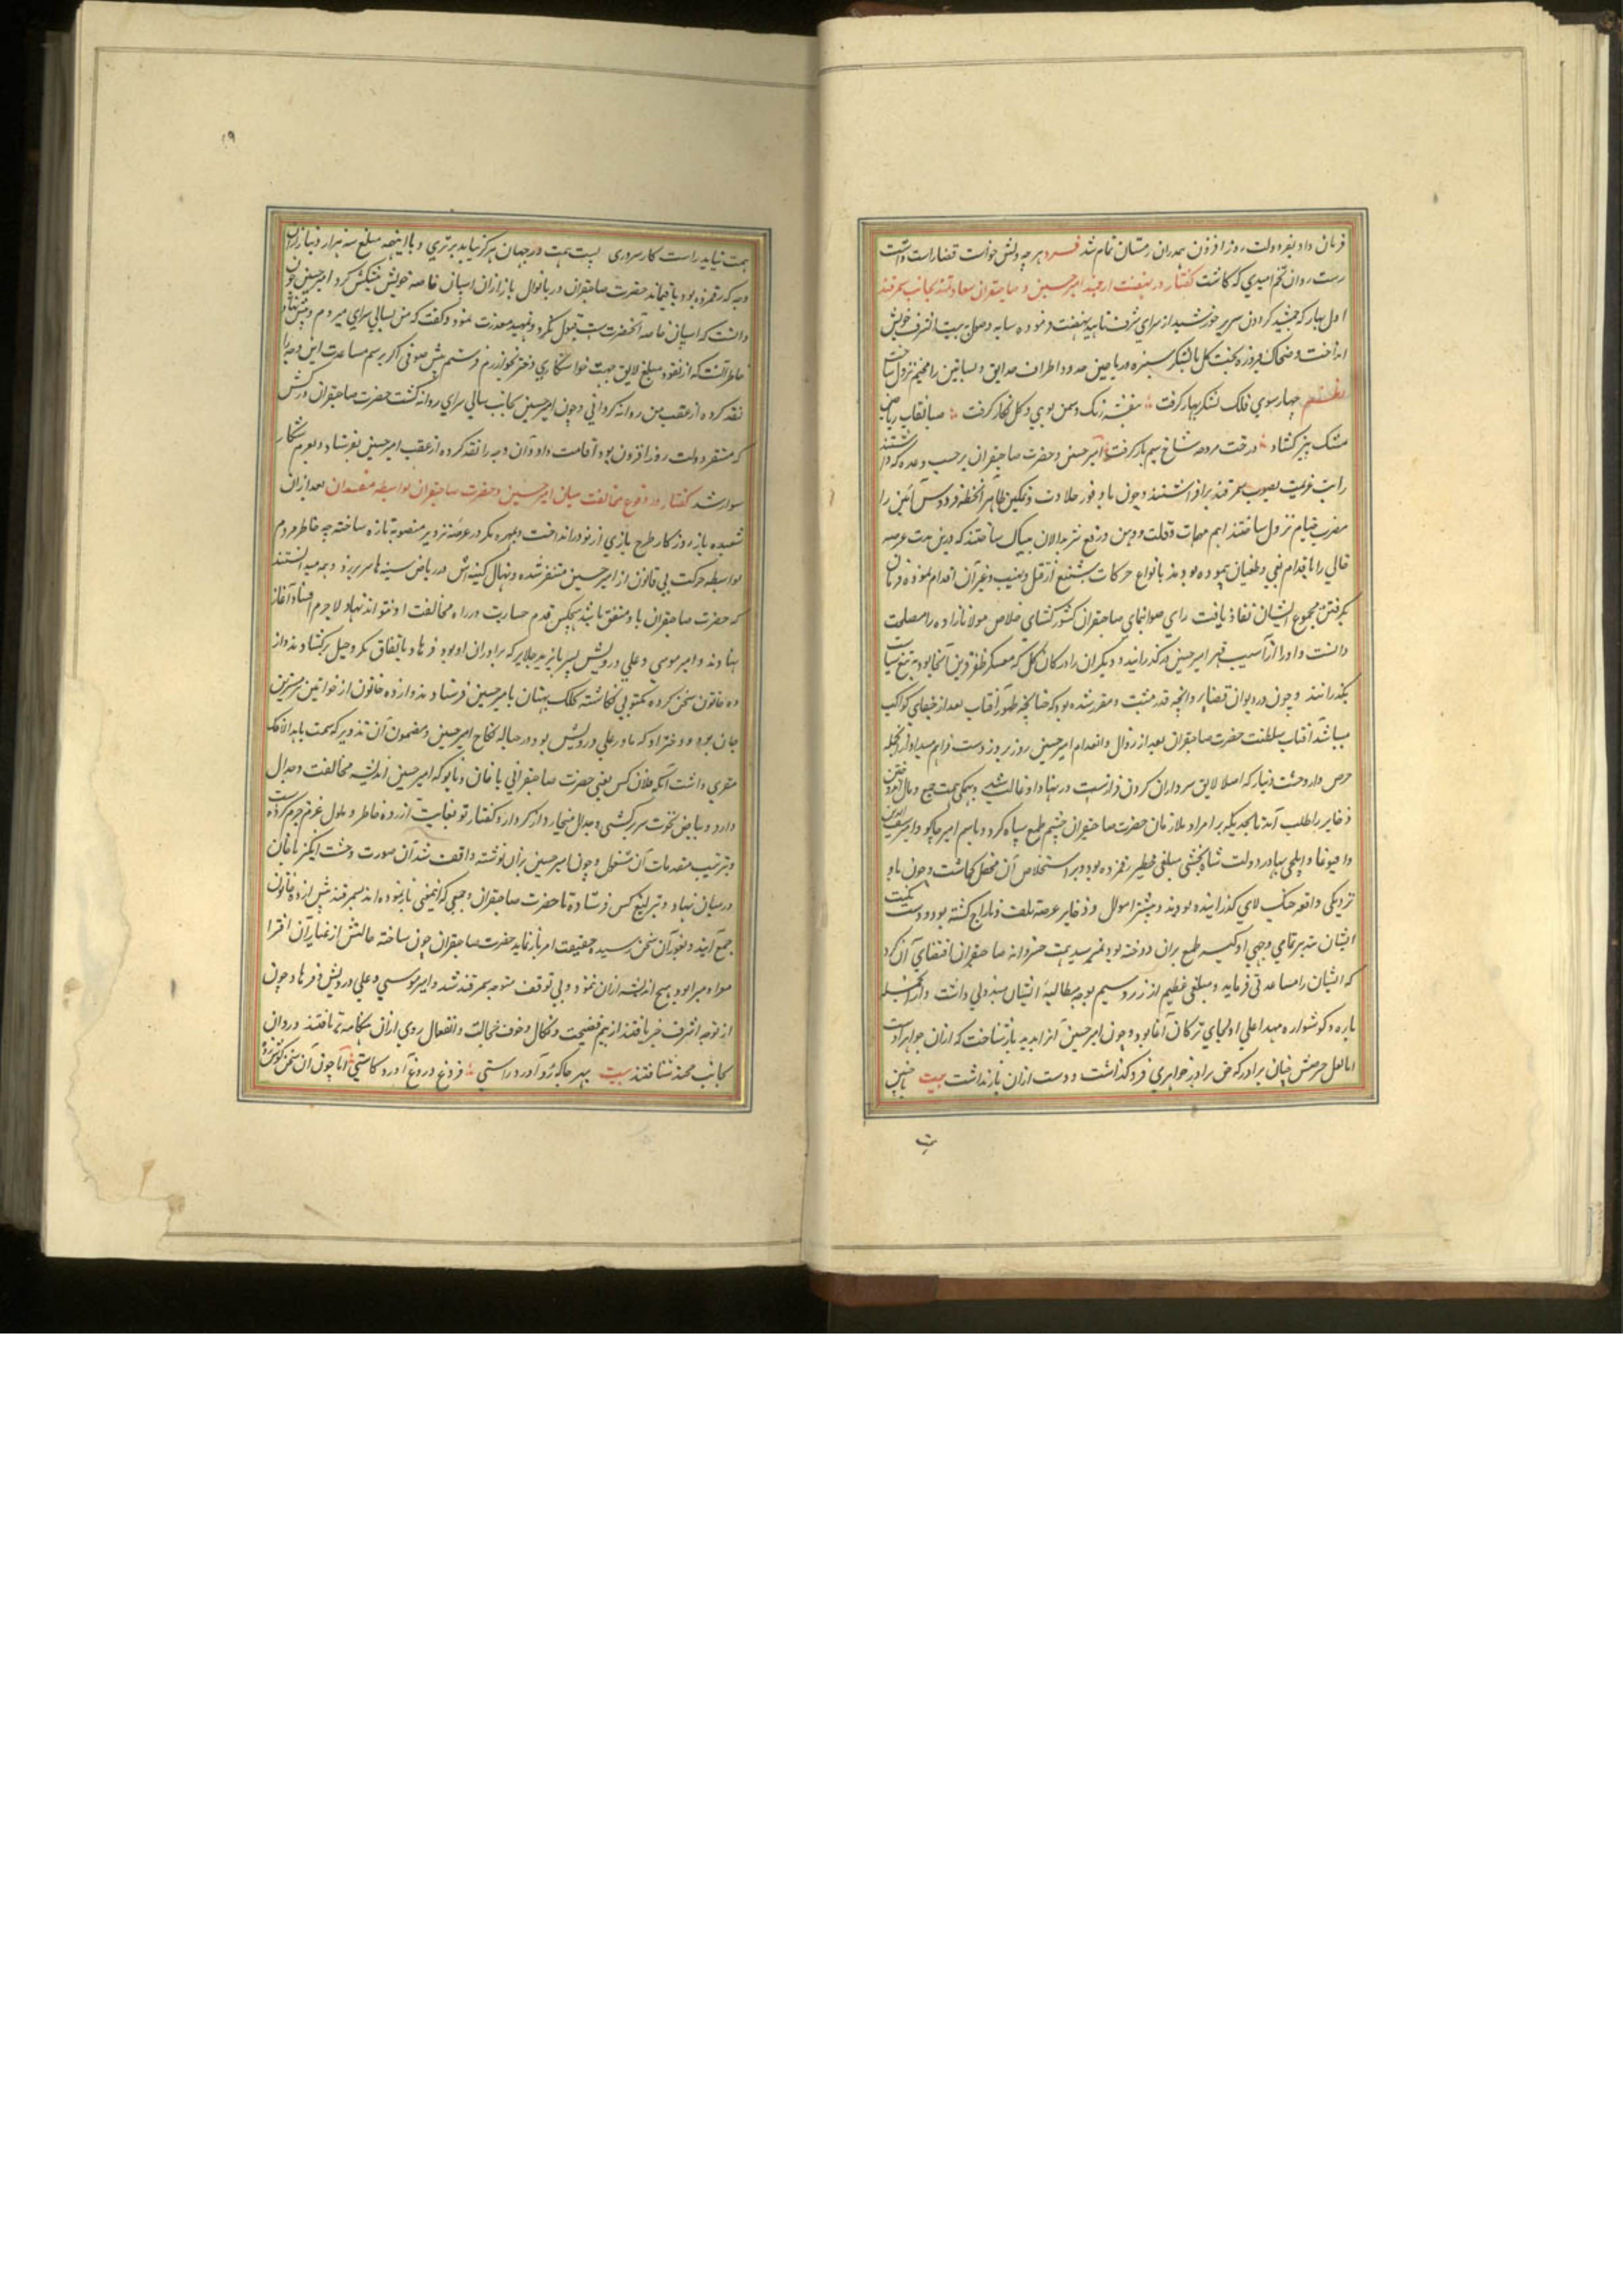 فرمان داد بفر دولت روز افزون همدران زمستان تمام شد فرد هر چه دلش خواست قضا راست داشت
رست روان تخم امیدی که کاشت گفتار در نهضت ارجمند امیر حسین و صاحبقران سعادتمند بجانب سمرقند
اول بهار که جمشید گردون سریر خورشید از سرای شرف تابید نهضت فرموده سایه وصول ببیت الشرف خویش
انداخت و ضحاک فیروزه بخت گل با لشکر سبزه و ریاحین حدود اطراف حدایق و بساتین را مخیم نزول ساخت
نظم چهار سوی فلک لشکر بهار گرفت بنفشه رنگ و سمن بوی و گل نگار گرفت صبا نقاب ریاحین
مشک بیز گشاد درخت مروحه شاخ سیم بار گرفت امیر حسین و حضرت صاحبقران بر حسب وعده که داشتند
رایت عزیمت بصوب سمرقند برافراشتند و چون با وفور جلادت و تمکین ظاهر آنخطه فردوس آئین را
مضرب خیام نزول ساختند اهم مهمات وقلت ودین دفع سربدالان بیباک ساختند که درین مدت عرصه
خالی را باقدام بغی و طغیان پیموده بودند بانواع حرکات شنیع از قتل و نهب و غیر آن اقدام نموده فرمان
بگرفتن مجموع ایشان نفاذ یافت رای صوابنمای صاحبقران کشورگشای خلاص مولانازاده را مصلحت
دانست و او را از آسیب قهر امیر حسین گذرانید و دیگران را در کان گل که معسکر ظفر قرین آنجا بود به تیغ سیاست
بگذرانند و چون در دیوان قضا بر وانچه قدر مثبت و مقرر شده بود که چنانچه ظهور آفتاب بعد از خفای کواکب
میباشد آفتاب سلطنت حضرت صاحبقران بعد از زوال و انعدام امیر حسین روز بروز دست فراهم میداد از آنجمله
حرص دار و خست دنیا که اصلا لایق سرداران گردن فراز نیست در نهاد او غالب شد و همگی همت جمع و مال اندوختن
ذخایر را طلب آمد تا بحدیکه بر امراء ملازمان حضرت صاحبقران چشم طمع سیاه کرد و باسم امیر جاکو و امیر سیف الدین
و اقبوغا و ایلچی بهادر و دولت شاه بخشی مبلغی خطیر رقم زده بود و بر استخلاص آن محصل گماشت و چون باو
نزدیکی واقعه جنگ لای گذرانیده بودند و بیشتر اموال و ذخایر عرصه تلف و تاراج گشته بود و دست مکنت
ایشان بتدبر تمامی وجهی او کیسه طمع بران دوخته بود نمیرسید همت خسروانه صاحبقران اقتضای آن کرد
که ایشان را مساعدتی فرماید و مبلغی عظیم از زر و سیم بوجه مطالبهٔ ایشان مبذولی داشت و از آنجمله
یاره و گوشواره مهد اعلی اولجای ترکان آغا بود و چون امیر حسین آنرا بدید بازشناخت که ازان خواهر اوست
اما لعل حرصش چنان برادر که حق برادر خواهری فرو گذاشت و دست ازان بازنداشت بیت چنین
همت نیاید راست کار سروری پست همت در جهان هرگز نیابد برتری و با اینهمه مبلغ سه هزار دینار ازان
وجه که رقم زده بود باقیماند حضرت صاحبقران دریانوال باز ازان اسپان خاصه خویش پیشکش کرد امیر حسین چون
دانست که اسپان خاصه آنحضرت است قبول نکرد و تمهید معذرت نمود و گفت که من بسالی سرای میروم و پیش نهاد
خاطر آنست که از نقود مبلغی لایق جهت خواستگاری دختر بخوارزم فرستم پیش صوفی اگر برسم مساعدت این وجه را
نقد کرده از عقب من روانه گردانی و چون امیر حسین بجانب سالی سرای روانه گشت حضرت صاحبقران در کش
که مستقر دولت روز افزون بود اقامت داد و آن وجه را نقد کرده از عقب امیر حسین بفرستاد و بعزم شکار
سوار شد گفتار در وقوع مخالفت میان امیر حسین و حضرت صاحبقران بواسطه مفسدان بعد ازان
شعبده باز روزگار طرح بازی از نو در انداخت و بمهره مکر در عرصه تزویر منصوبهٔ تازه ساخته چه خاطر مردم
بواسطه حرکت بی قانون از امیر حسین متنفر شده و نهال کینه اش در ریاض سینه ها سر بر زد و همه میدانستند
که حضرت صاحبقران با او متفق باشد هیچکس قدم جسارت در راه مخالفت او نتواند نهاد لاجرم افساد آغاز
نهادند و امیر موسی و علی درویش پسر بایزید جلایر که برادران او بود و فرهاد باتفاق مکر و حیل برگشادند و از
ده خاتون سخن کرده مکتوبی نگاشته کلک بهتان بامیر حسین فرستادند و ازده خاتون از خواتین
جان بود و دختر او که مادر علی درویش بود در حباله نکاح امیر حسین و مضمون آن تذویر که سمت بابه الافک
مفتری داشت آنکه فلان کس یعنی حضرت صاحبقرانی با خان و تابو که امیر حسین اندیشه مخالفت و جدال
دارد و بیاض نخوت سرکشی و جدال میخارد و از کردار و گفتار تو بغایت آزرده خاطر و ملول عزم جزم کرده است
و ترتیب مقدمات آن مشغول و چون امیر حسین بران نوشته واقف شد آن صورت وحشت انگیز با خان
در میان نهاد و تیرلیغ کس فرستاده تا حضرت صاحبقران و جمعی که اینمعنی بازنموده اند بسمرقند پیش ازده خاتون
جمع آیند و بغور آن سخن رسیده حقیقت امر باز نماید حضرت صاحبقران چون ساخته حالش از غبار آن افترا
مبرا بود هیچ اندیشه ازان ننمود و بی توقف متوجه سمرقند شد و امیر موسی و علی درویش و فرهاد چون
از توجه اشرف خبر یافتند از بیم فضیحت و نکال و خوف خجالت و انفعال روی ازان هنگامه برتافتند و روان
بجانب خجند شتافتند بیت بهر جا که رو آورد راستی فروغ دروغ آورد کاستی اما چون آن سخن